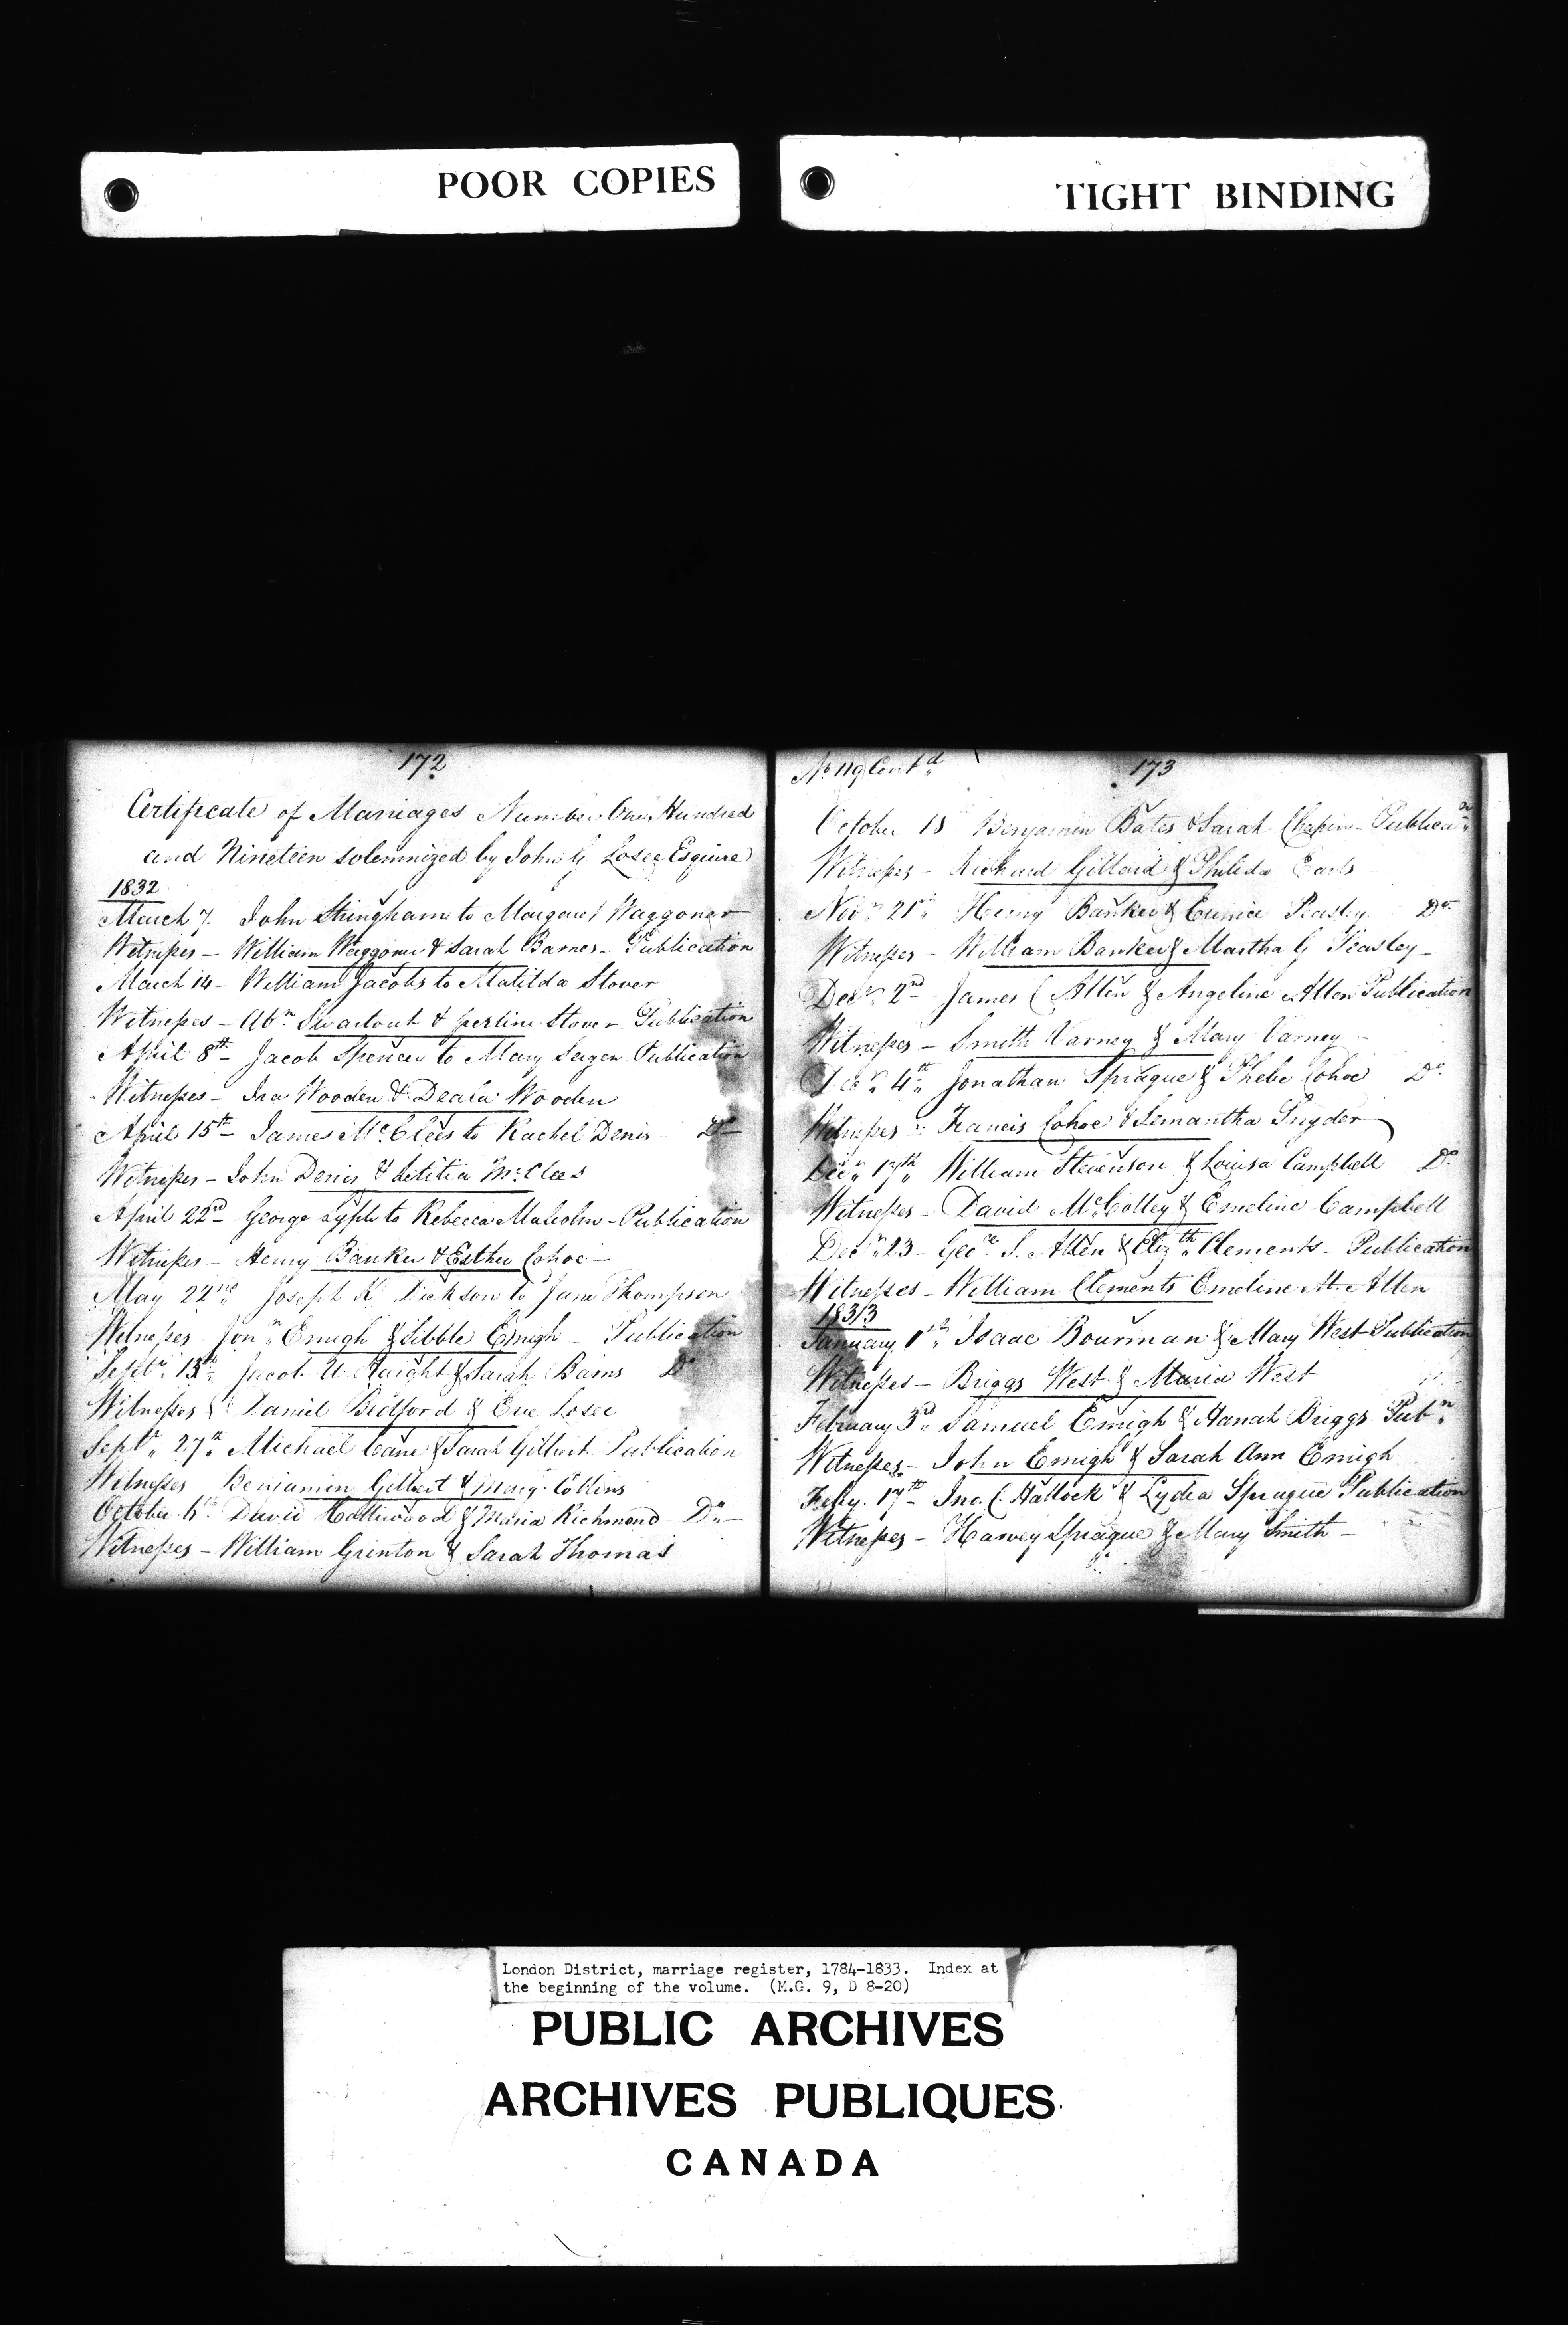 POOR COPIES
TIGHT BINDING
172
Certificate of Marriages Number One Hundred
and Nineteen solemnized by John G Losee Esquire
1832
March 7. John Stringham to Margaret Waggoner
Witnesses - William Waggoner & Sarah Barnes - Publication
March 14 - William Jacobs to Matilda Stover
Witnesses - Abm Swartout & Stover - Publication
April 8th - Jacob Spencer to Mary Publication
Witnesses - Ira Wooden & Wooden
April 15th - James McClees to Rachel Denis Do
Witnesses - John Denis & Letitia McClees
April 22nd - George to Rebecca Malcolm - Publication
Witnesses - Henry Banker & Esther Cohoe -
May 22nd Joseph Dickson to Jane Thompson
Witnesses Emigh & Sibble Emigh - Publication
Septr 13th Jacob Haight & Sarah Barns Do
Witnesses Daniel Bedford & Eve Losee
Septr 27th Michael Cane & Sarah Gilbert Publication
Witnesses Benjamin Gilbert & Collins
October David & Maria Richmond - Do -
Witnesses - William Grinton & Sarah Thomas
No 119 Contd
173
October 18 Benjamin Bates & Sarah Chapin - Publican
Witnesses - Richard & Philida Earls
Novr 21st Henry Banker & Eunice Peasley Do
Witnesses - William Banker & Martha G Peasley -
Decr 2nd James C Allen & Angeline Allen Publication
Witnesses - Smith Varney & Mary Varney -
Decr 4th Jonathan Sprague & Phebe Cohoe Do
Witnesses Francis Cohoe & Semantha Snyder
Decr 17th William Stevenson & Louisa Campbell Do
Witnesses - David McColley & Emeline Campbell
Decr 23 - Geoe S. Allen & Elizth Clements - Publication
Witnesses - William Clements Emeline M. Allen
1833
January Isaac Bowman & Mary West - Publication
Witnesses - Briggs West & Maria West
February 3rd Samuel Emigh & Hanah Briggs Pubn
Witnesses - John Emigh & Sarah Ann Emigh
Feby. 17th - Jno. C. Hallock & Lydia Sprague Publication
Witnesses - Harvey Sprague & Mary Smith -
London District, marriage register, 1784-1833. Index at
the beginning of the volume. (M.G. 9, D 8-20)
PUBLIC ARCHIVES
ARCHIVES PUBLIQUES
CANADA